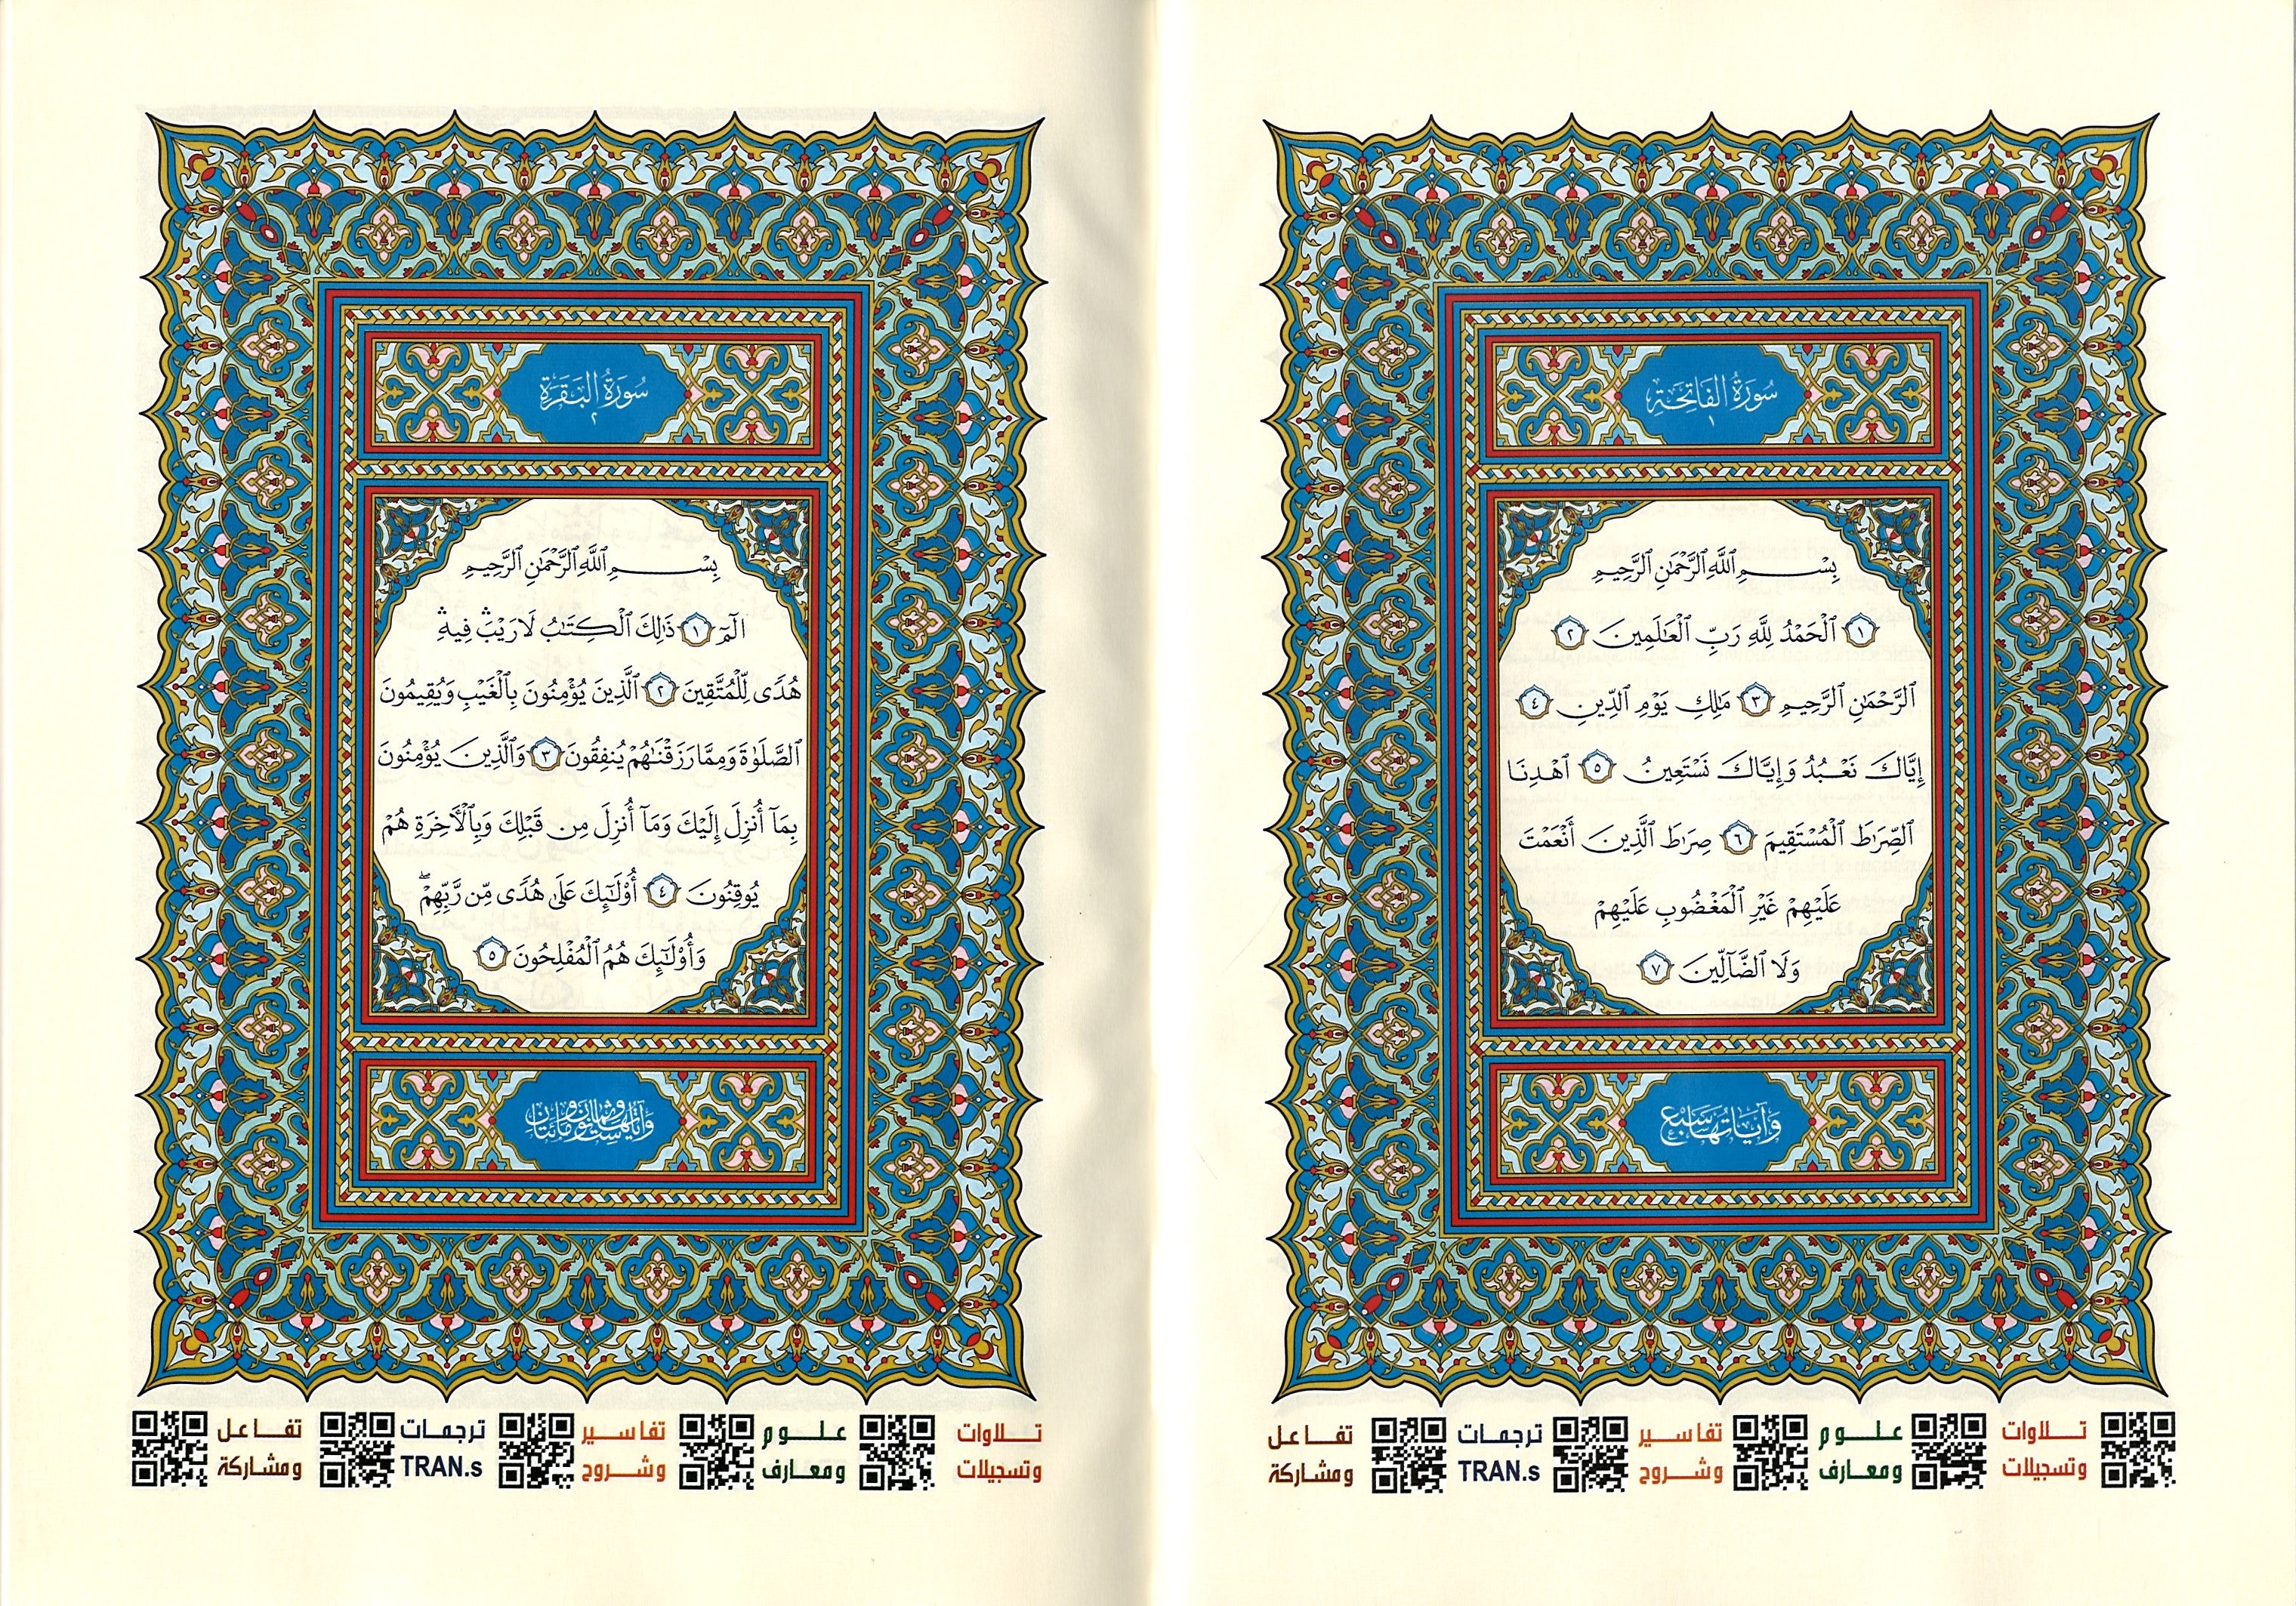 سُورَةُ الفَاتِحَةِ
١
بِسْمِ ٱللَّهِ ٱلرَّحْمَٰنِ ٱلرَّحِيمِ
١ ٱلْحَمْدُ لِلَّهِ رَبِّ ٱلْعَٰلَمِينَ ٢
ٱلرَّحْمَٰنِ ٱلرَّحِيمِ ٣ مَٰلِكِ يَوْمِ ٱلدِّينِ ٤
إِيَّاكَ نَعْبُدُ وَإِيَّاكَ نَسْتَعِينُ ٥ ٱهْدِنَا
ٱلصِّرَٰطَ ٱلْمُسْتَقِيمَ ٦ صِرَٰطَ ٱلَّذِينَ أَنْعَمْتَ
عَلَيْهِمْ غَيْرِ ٱلْمَغْضُوبِ عَلَيْهِمْ
وَلَا ٱلضَّآلِّينَ ٧
وَآيَاتُهَا سَبْعٌ
تلاوات علوم تفاسير ترجمات تفاعل
وتسجيلات ومعارف وشروح TRAN.s ومشاركة
سُورَةُ البَقَرَةِ
٢
بِسْمِ ٱللَّهِ ٱلرَّحْمَٰنِ ٱلرَّحِيمِ
الٓمٓ ١ ذَٰلِكَ ٱلْكِتَٰبُ لَا رَيْبَ ۛ فِيهِ ۛ
هُدًى لِّلْمُتَّقِينَ ٢ ٱلَّذِينَ يُؤْمِنُونَ بِٱلْغَيْبِ وَيُقِيمُونَ
ٱلصَّلَوٰةَ وَمِمَّا رَزَقْنَٰهُمْ يُنفِقُونَ ٣ وَٱلَّذِينَ يُؤْمِنُونَ
بِمَآ أُنزِلَ إِلَيْكَ وَمَآ أُنزِلَ مِن قَبْلِكَ وَبِٱلْأَخِرَةِ هُمْ
يُوقِنُونَ ٤ أُو۟لَٰٓئِكَ عَلَىٰ هُدًى مِّن رَّبِّهِمْ ۖ
وَأُو۟لَٰٓئِكَ هُمُ ٱلْمُفْلِحُونَ ٥
وَآيَاتُهَا سِتٌّ وَثَمَانُونَ وَمِائَتَانِ
تلاوات علوم تفاسير ترجمات تفاعل
وتسجيلات ومعارف وشروح TRAN.s ومشاركة